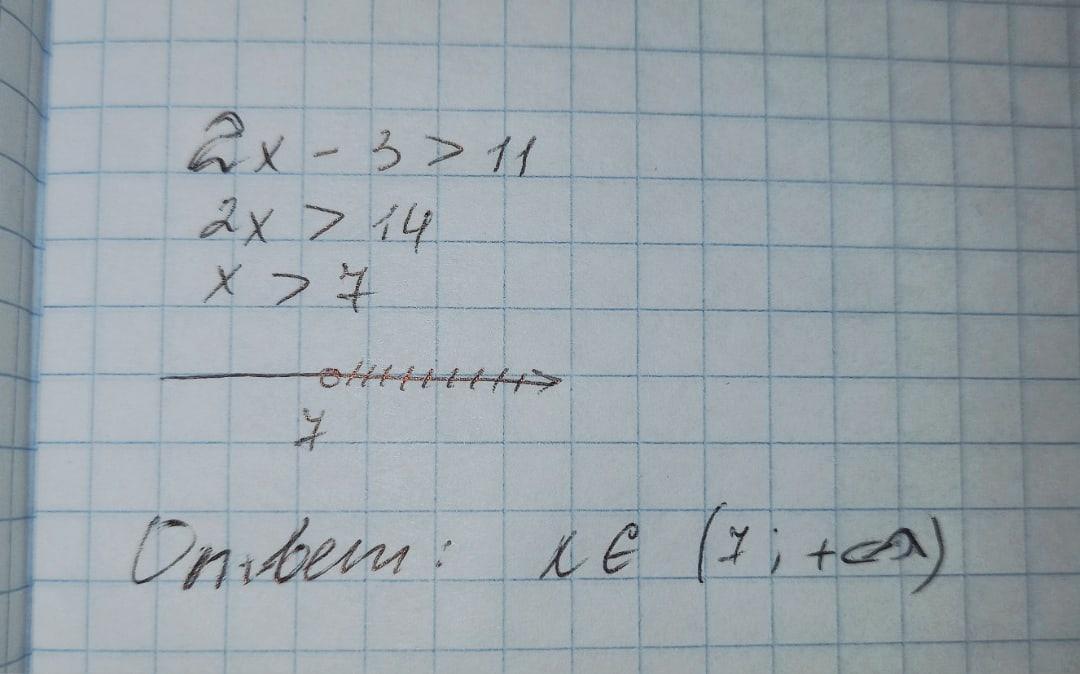 2x - 3 > 11
2x > 14
x > 7
7
Ответ: x ∈ (7; +∞)